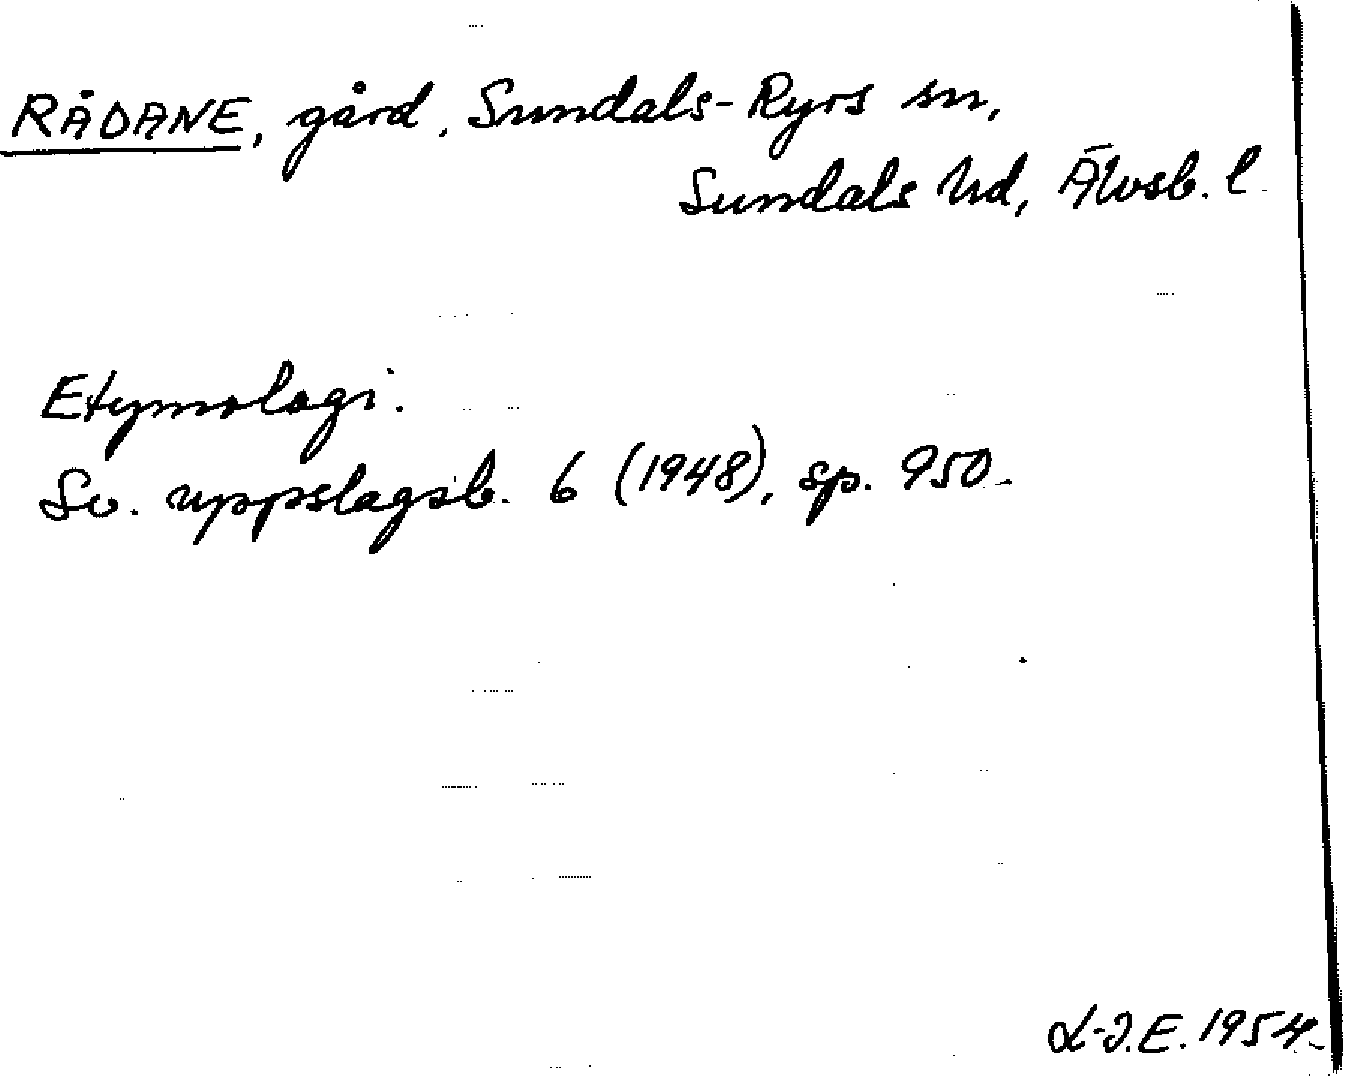 RÅDANE, gård, Sundals-Ryrs sn,
Sundals hd, Älvsb. l.
Etymologi.
Sv. uppslagsb. 6 (1948), sp. 950.
L-J.E. 1954.